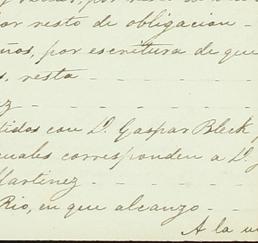 or resto de obligacion
ños, por escritura de que
s, resta
ez
tidos con D. Gaspar Bleck
cuales corresponden a D.
Martinez
Rio, en que alcanzo
A la